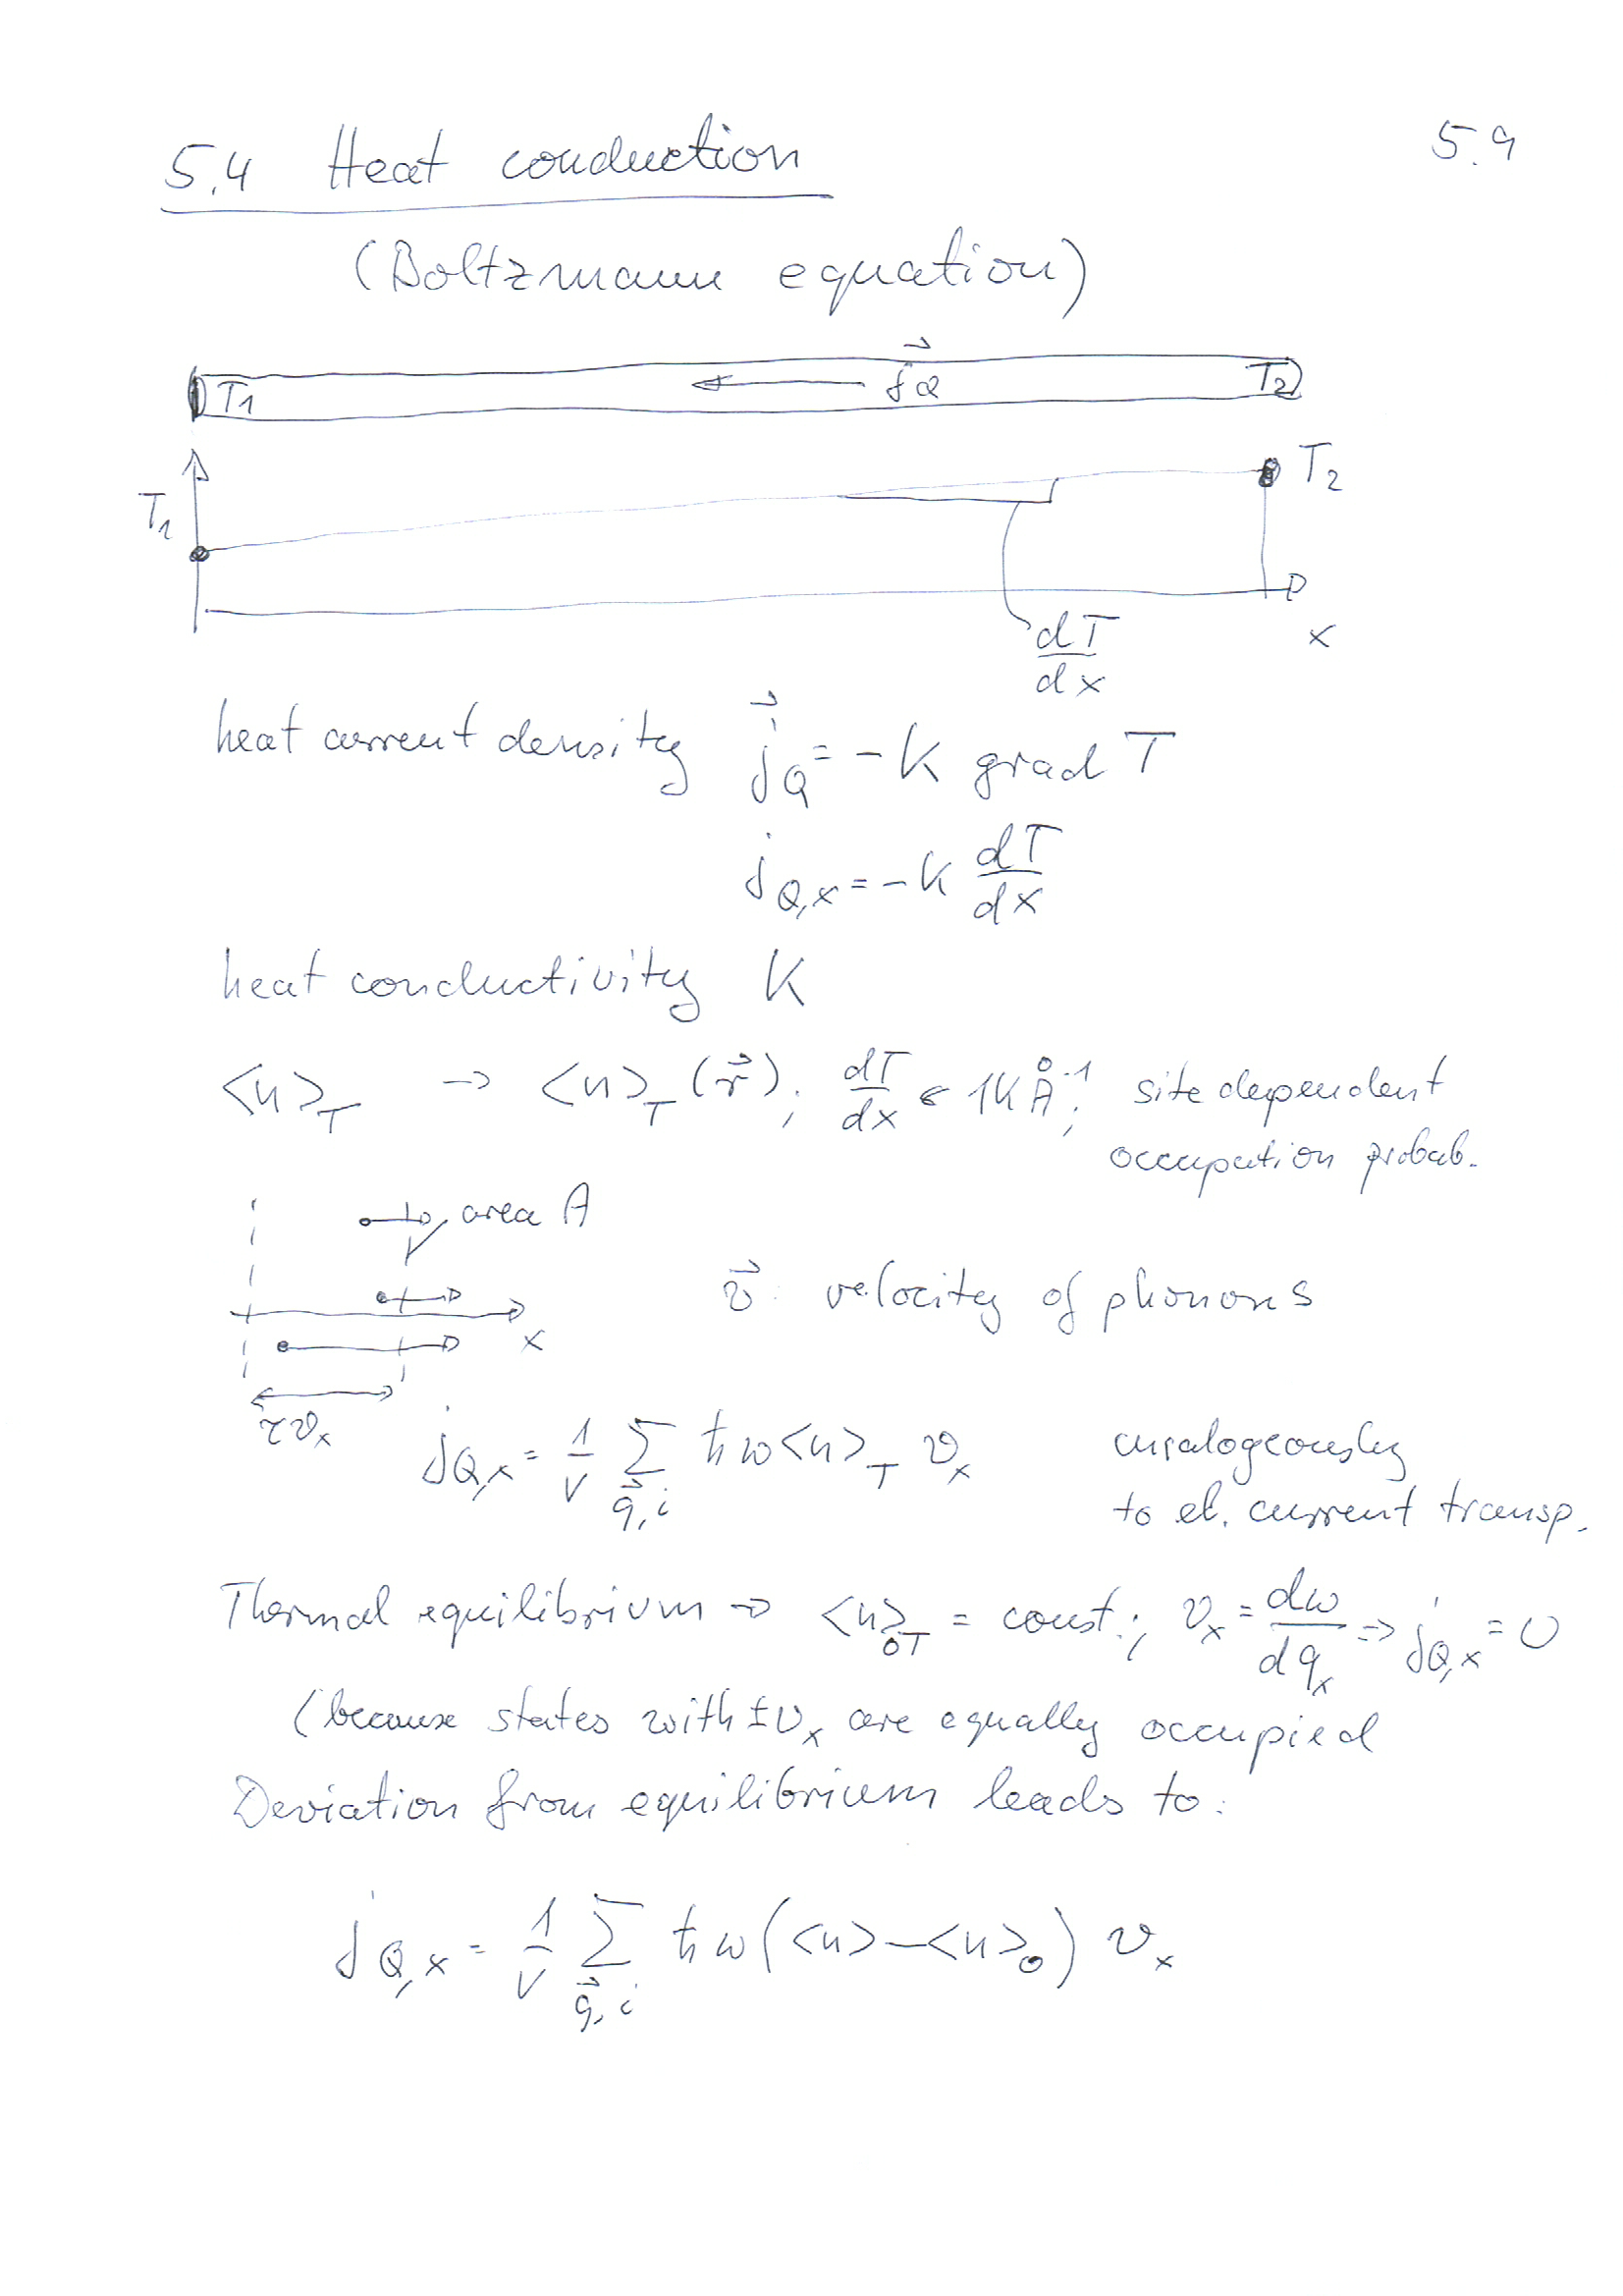 5.4 Heat conduction
5.9
(Boltzmann equation)
T₁ j⃗Q T₂
T₁
T₂
x
dT/dx
heat current density j⃗_Q = -K grad T
j_Q,x = -K dT/dx
heat conductivity K
<n>_T → <n>_T (r⃗); dT/dx ≪ 1KÅ⁻¹; site dependent
occupation probab.
area A
v⃗: velocity of phonons
x
τv_x
j_Q,x = 1/V Σ_q⃗,i ħω<n>_T v_x analogeously
to el. current transp.
Thermal equilibrium → <n>_0T = const.; v_x = dω/dq_x ⇒ j_Q,x = 0
(because states with ±v_x are equally occupied
Deviation from equilibrium leads to:
j_Q,x = 1/V Σ_q⃗,i ħω(<n>-<n>_0) v_x